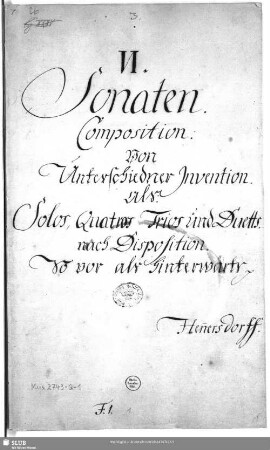 VI.
Sonaten.
Composition:
von
Unterschiedner Invention.
als
Solos, Quatros Trios und Duetts.
nach Disposition
So vor als hinterwärts
Hennersdorff.
Mus. 2743-R-1
F. 1.
1
SLUB